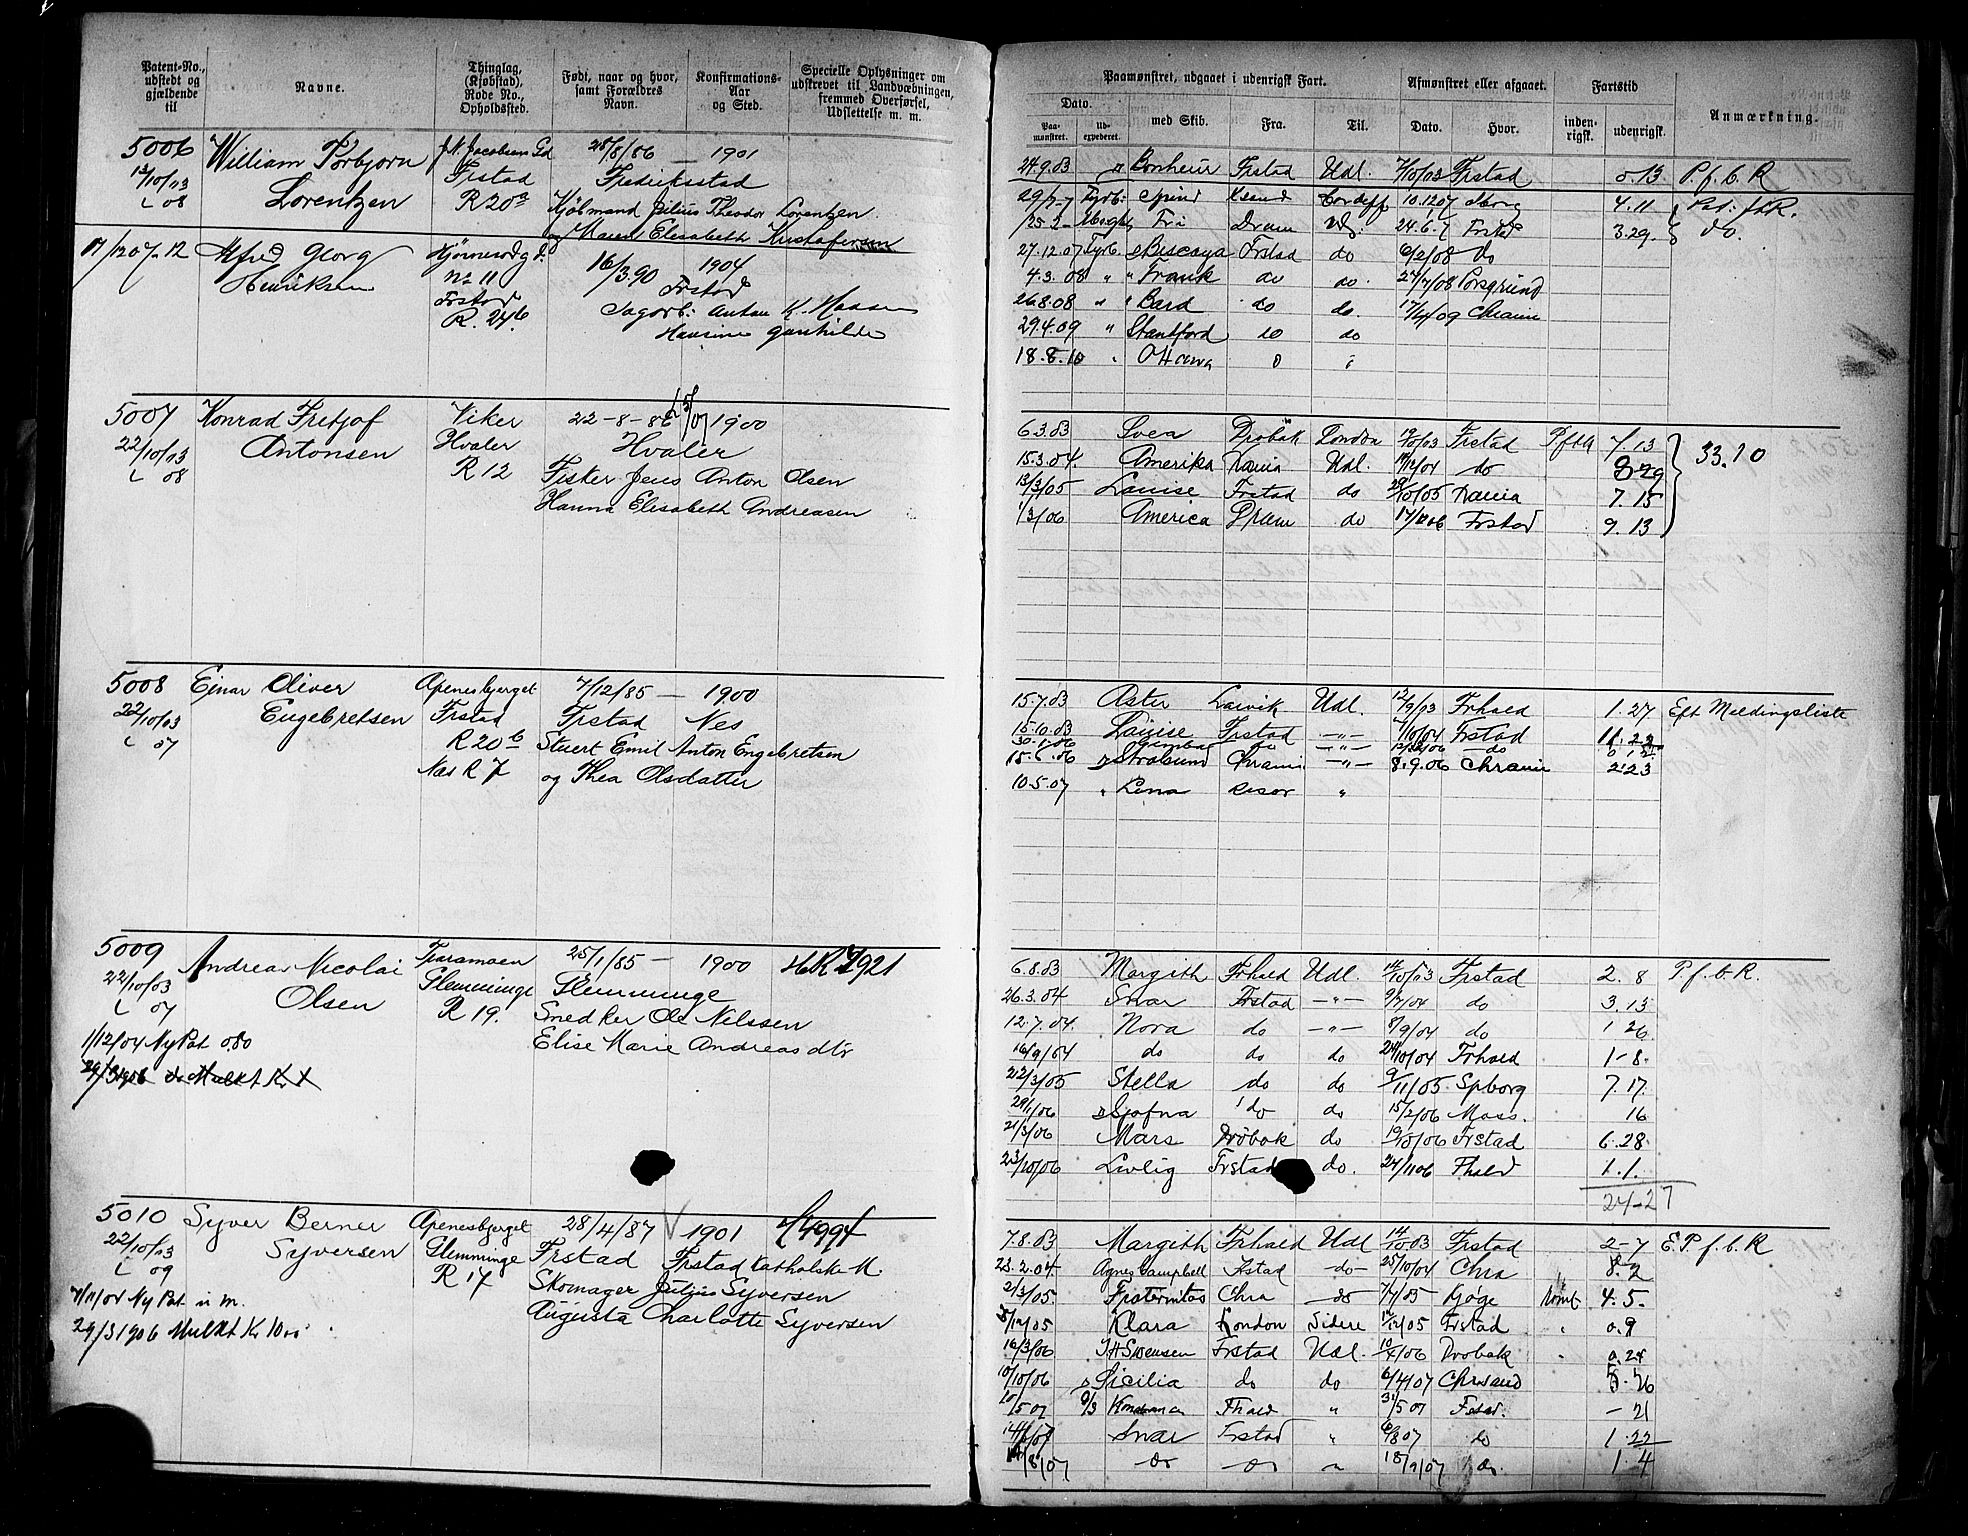 Patent-No., udstedt og gjældende til
Navne.
Thinglag, (Kjøbstad), Rode No., Opholdssted.
Født, naar og hvor, samt Forældres Navn.
Konfirmations-Aar og Sted.
Specielle Oplysninger om udskrevet til Landværningen, fremmed Overførsel, Udslettelse m. m.
5006 William Torbjørn J.N. Jacobsens Gd 25/8/86 — 1901
12/10/03 Lorentzen Frstad Fredriksstad
L 08 R 20 Kjøbmand Julius Theodor Lorentzen
og Maren Elisabeth Gustafersen
17/12 07-12 Alfred Georg 16/3.90 1904
Henriksen No 11 Frstad
Frstad Anton K. Hansen
R. 24b Gunhilde
5007 Konrad Fretjof Viker 22-8-86 1900
22/10/03 Antonsen Hvaler Hvaler
L 08 R 12 Fisker Jens Anton Olsen
Hanna Elisabeth Andreasen
5008 Ejnar Oliver Apenesbjerget 7/12/85 — 1900
22/10/03 Engebretsen Frstad Frstad Nes
L 07 R 20b Stuert Emil Anton Engebretsen
Næs R 7 og Thea Olsdatter
5009 Andreas Nicolai Traramoen 25/1/85 — 1900
22/10/03 Olsen Glemminge Glemminge
L 07 R 19. Smed Ker Ole Nilssen
1/12/04 Ny Pat 080 Elise Marie Andreasdtr
29/3 1906 do Mulkt Kr
5010 Syver Berner Apenesbjerget 28/4/87 1901
22/10/03 Syversen Glemminge Frstad Frstad katholske M.
L 09 R 17 Skomager Julius Syversen
7/11/04 Ny Pat u m. Augusta Charlotte Syversen
29/3 1906 Mulkt Kr 10
Paamønstret, udgaaet i udenrigsk Fart.
Afmønstret eller afgaaet.
Fartstid
Anmærkning.
Dato.
Paamønstret.
Udexpederet.
med Skib.
Fra.
Til.
Dato.
Hvor.
indenrigsk.
udenrigsk.
24.9.03 Bonheur Frstad Udl. 7/10/03 Frstad 0.13 P. f. b. R
29/7-7 Fyrb. Spind Cardiff 10.12 07 4.11 Pat. f. b. R.
25.2 Fri Dram Udl. 24.6.7 Frstad 3.29. do.
27.12.07 Fyrb. Biscaya Frstad do 6/2/08 do
4.3.08 " " Frank do do. 27/7/08 Porsgrund
26.8.08 " " Bard do do. 17/4/09 Chrania
29.4.09 " Stantford do do
18.8.10 " Ottawa
6.3.03 Svea Drøbak London 19/10/03 Frstad P f b R 7/13
15.3.04. Amerika Krania Udl. 14/12/04 do 8 29 33.10
13/3/05 Louise Frstad do 28/10/05 Krania 7.15
1/3/06 America Dram do 17/12 06 Frstad 9.13
15.7.03 Aster Larvik Udl. 12/9/03 Frhald 1.27 Eft. Meldingsliste
15.10.03 Louise Frstad —"— 7/10/04 Frstad 11.22
30.1.06 do —"— do
15.6.06 Stralsund Chrania —"— 8.9.06 Chrania 2.23
10.5.07 " Lena Risør "
6.8.03 Margith Frhald Udl. 14/10/03 Frstad 2. 8 P. f. b. R.
26.3.04 Snar Frstad —"— 9/7/04 do 3.13
12.7.04. Nora do —"— 8/9/04 do 1 26
16/9/04 do do do 24/10/04 Frhald 1-8.
22/3/05 Stella do do 9/11/05 Spborg 7.17.
29/1/06 Sjofna do do 15/2/06 Moss. 16
21/3/06 Mars Drøbak do 19/10/06 Frstad 6.28
23/10/06 Livlig Frstad do. 24/11 06 Fhald 1.1.
24-27
7.8.03 Margith Frhald Udl 14/10 03 Frstad 2-7 E. P. f. b. R
23.2.04. Agnes Campbell Fstad —do— 25/10/04 Chra 8.2
2/3/05. Fraternitas Chra do 7/7/05 Kjøge Rømt 4.5.
Klara London Sidere 12/12/05 Frstad 0.9
16/3/06 J H Svensen Frstad Udl. 10/4/06 Drøbak 0.24
10/10/06 Sicilia do do 6/4/07 Chrsand 5.26
10/5 07 Fhald " 31/5 07 Fstad. - 21
14/6/07 Snar Frstad " 6/8 07 do 1.22
14/8/07 do do " 18/9/07 do. 1.4